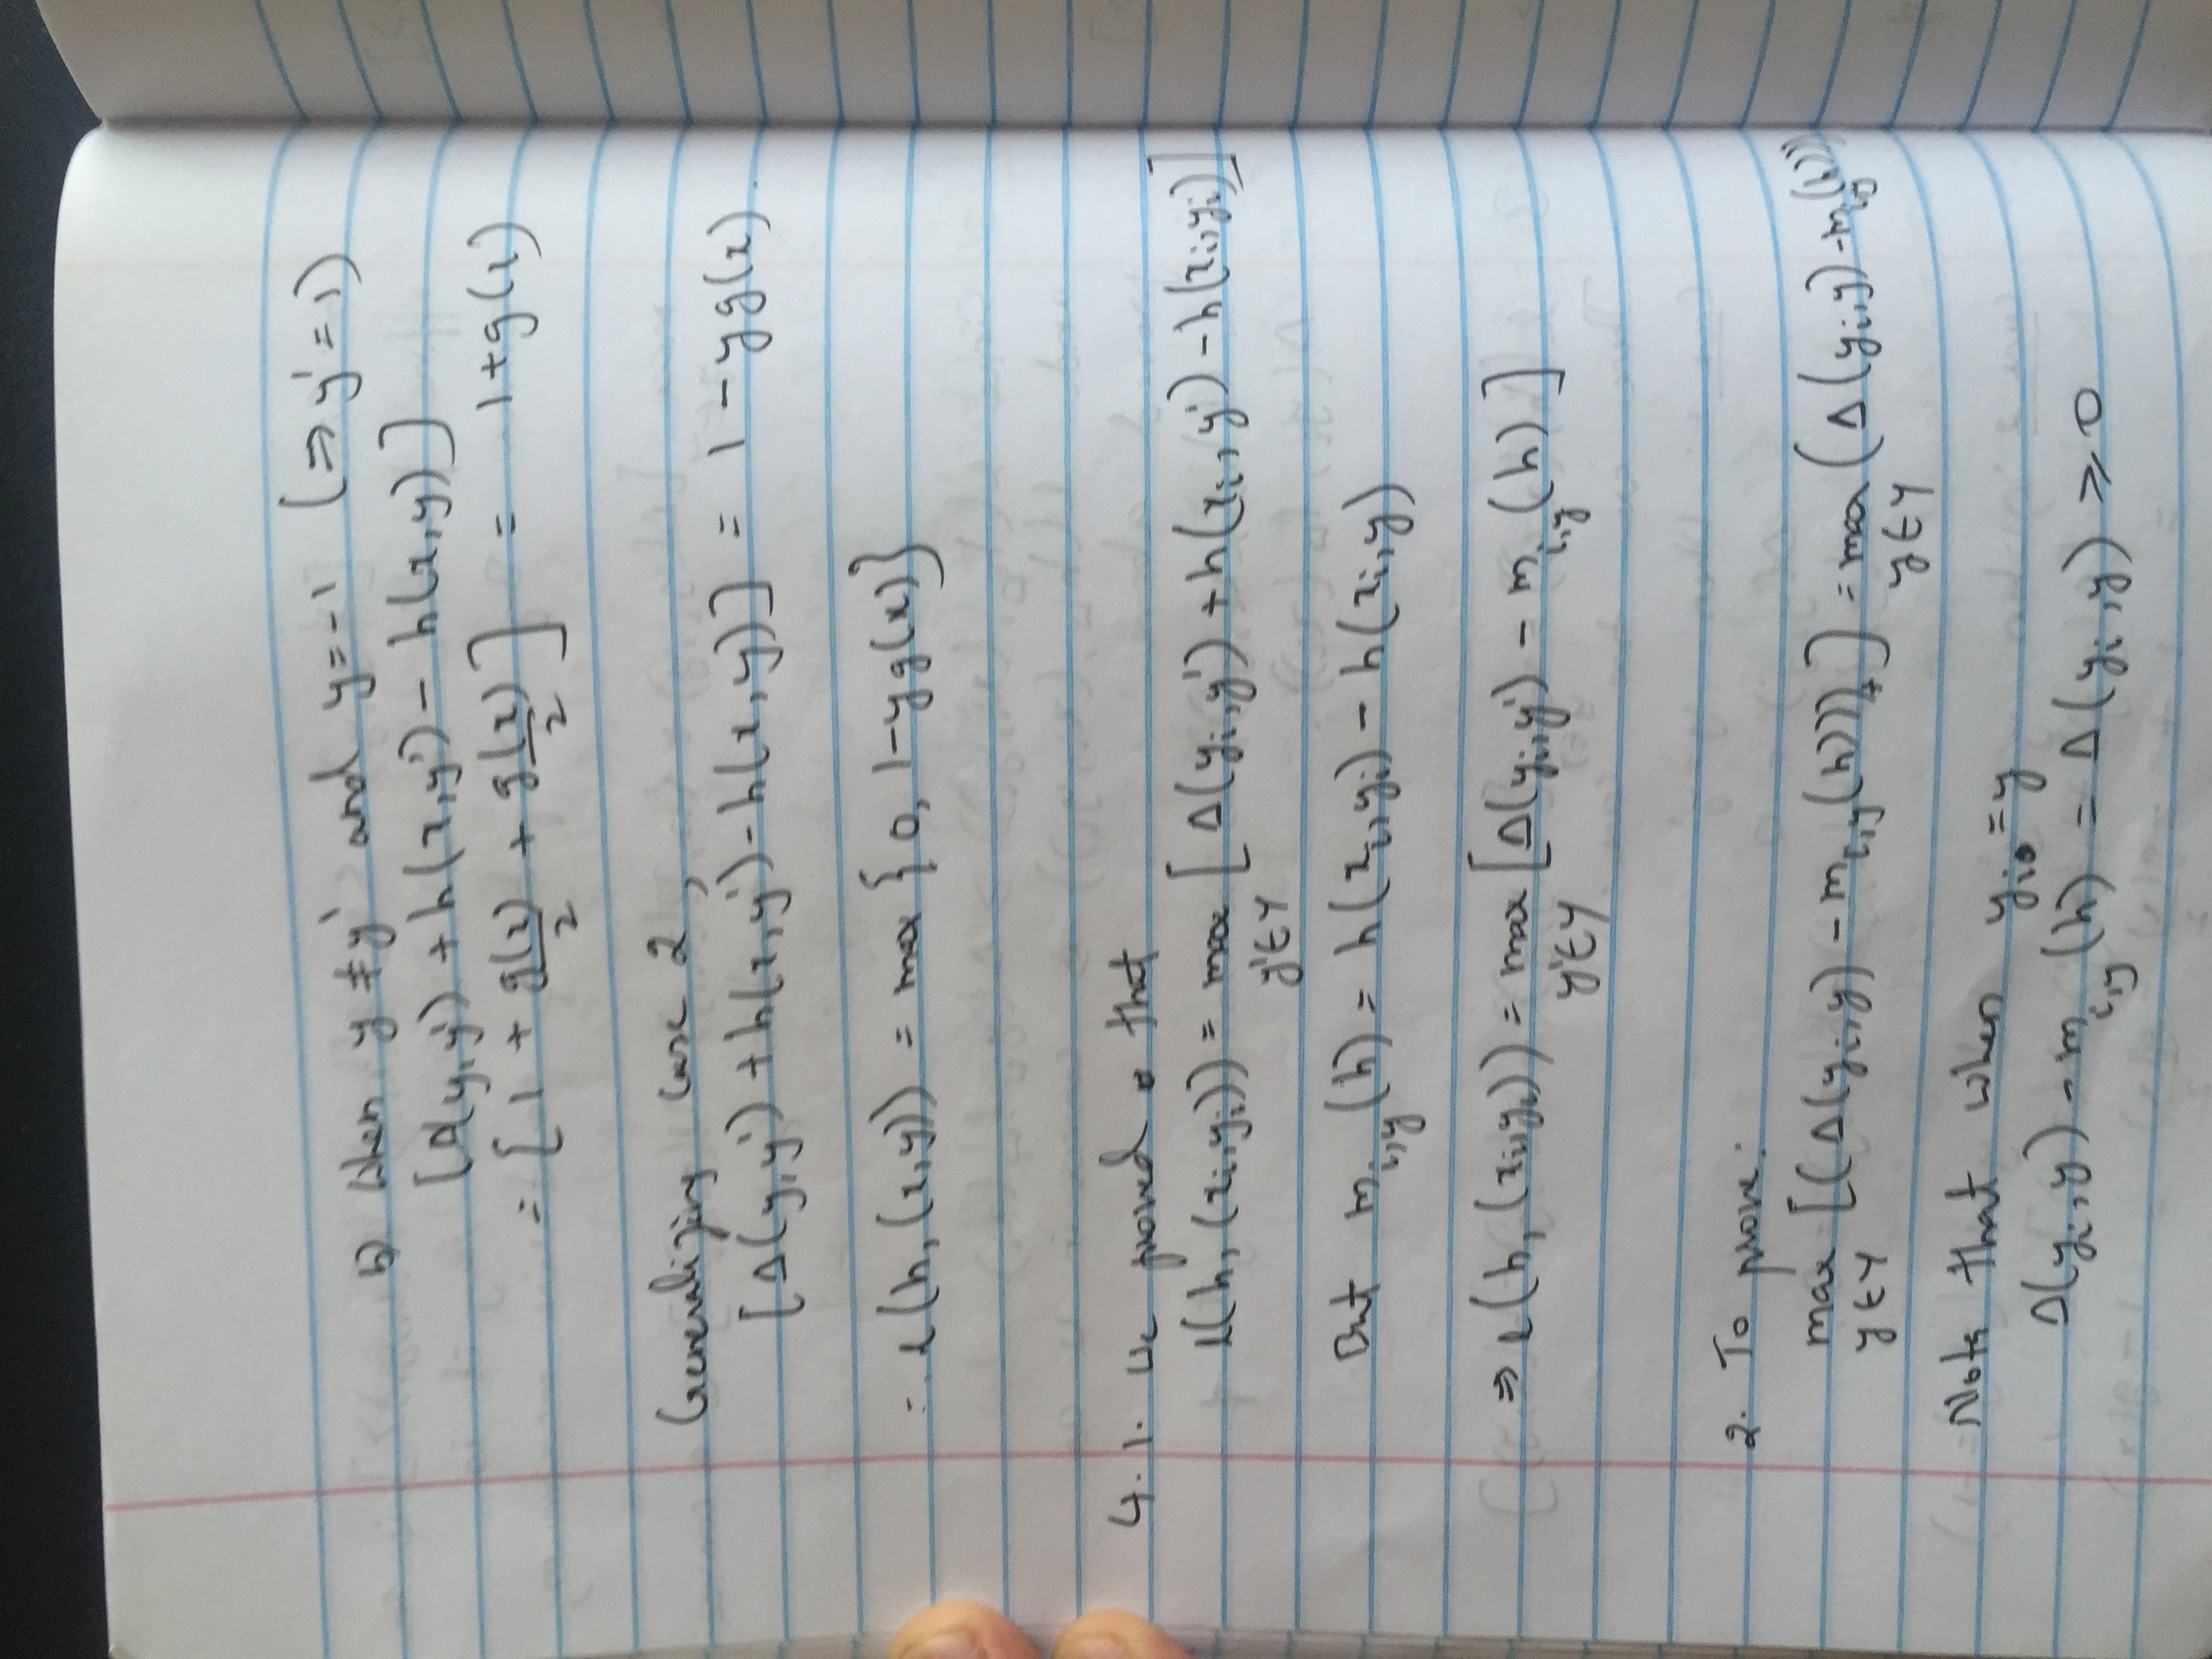 b) When y ≠ y' and y = -1 (⇒ y' = 1)
[Δ(y,y') + h(x,y') - h(x,y)]
= [1 + g(x)/2 + g(x)/2] = 1 + g(x)
Generalizing case 2,
[Δ(y,y') + h(x,y') - h(x,y)] = 1 - yg(x).
∴ l(h,(x,y)) = max {0, 1-yg(x)}
4. 1. We proved that
l(h, (x_i,y_i)) = max_{y'∈Y} [Δ(y_i,y') + h(x_i,y') - h(x_i,y_i)]
But m_{i,y}(h) = h(x_i,y_i) - h(x_i,y)
⇒ l(h, (x_i,y_i)) = max_{y'∈Y} [Δ(y_i,y') - m_{i,y}(h)]
2. To prove:
max_{y∈Y} [(Δ(y_i,y) - m_{i,y}(h)))_+] = max_{y∈Y} (Δ(y_i,y) - m_{i,y}(h)))
Note that when y_i = y
Δ(y_i,y) - m_{i,y}(h) = Δ(y_i,y) ≥ 0